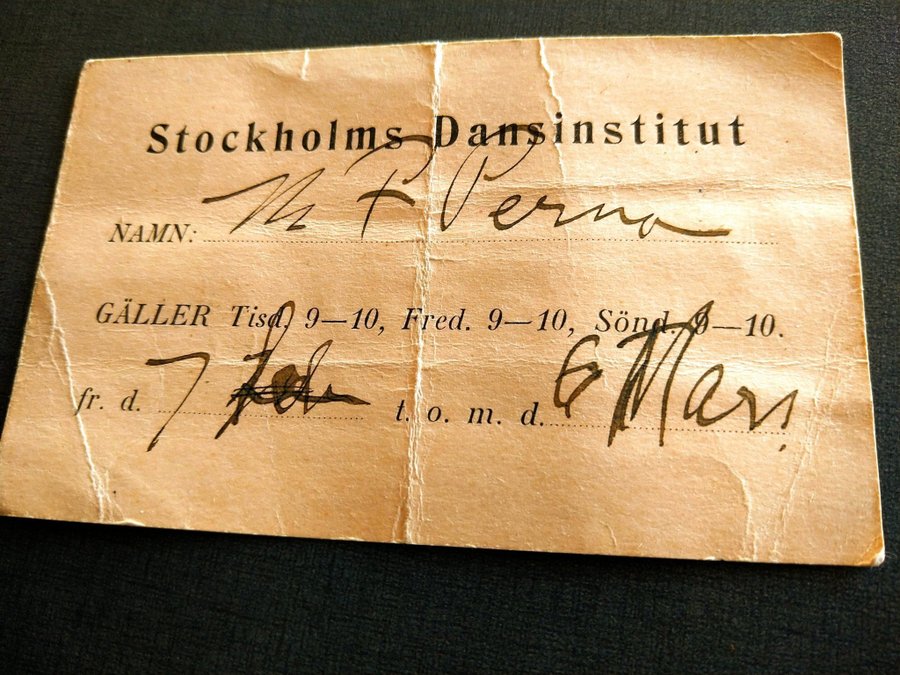 Stockholms Dansinstitut
NAMN: M P Perno
GÄLLER Tisd. 9—10, Fred. 9—10, Sönd. 9—10.
fr. d. 7 Feb t. o. m. d. 6 Mars